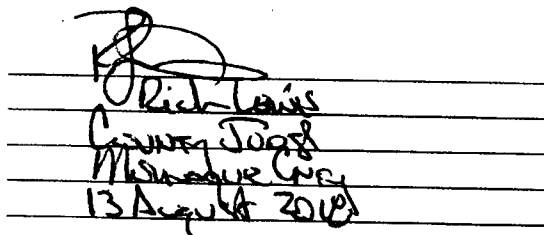 Rick Lewis
County Judge
Montague Cnty
13 August 2018